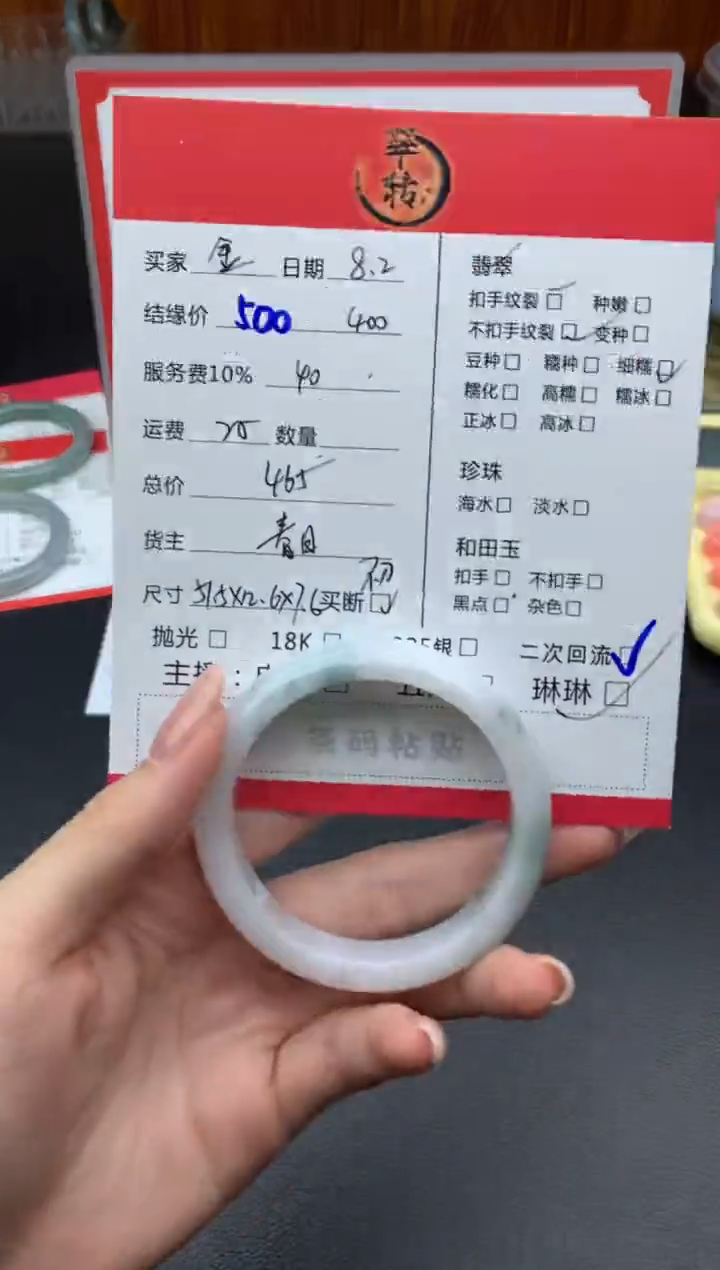 翠转
买家 金 日期 8.2
结缘价 500 400
服务费10% 40
运费 25 数量
总价 465
货主 青日
尺寸 51.5X12.6X7.6 买断
抛光 18K 银 二次回流
主播: 琳琳
条码粘贴
翡翠
扣手纹裂 种嫩
不扣手纹裂 变种
豆种 糯种 细糯
糯化 高糯 糯冰
正冰 高冰
珍珠
海水 淡水
和田玉
扣手 不扣手
黑点 杂色